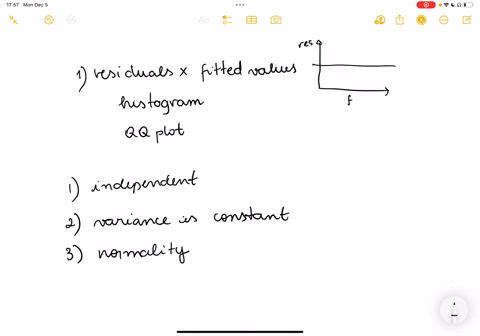 17:57 Mon Dec 5
res
1) residuals x fitted values
f
histogram
QQ plot
1) independent
2) variance is constant
3) normality